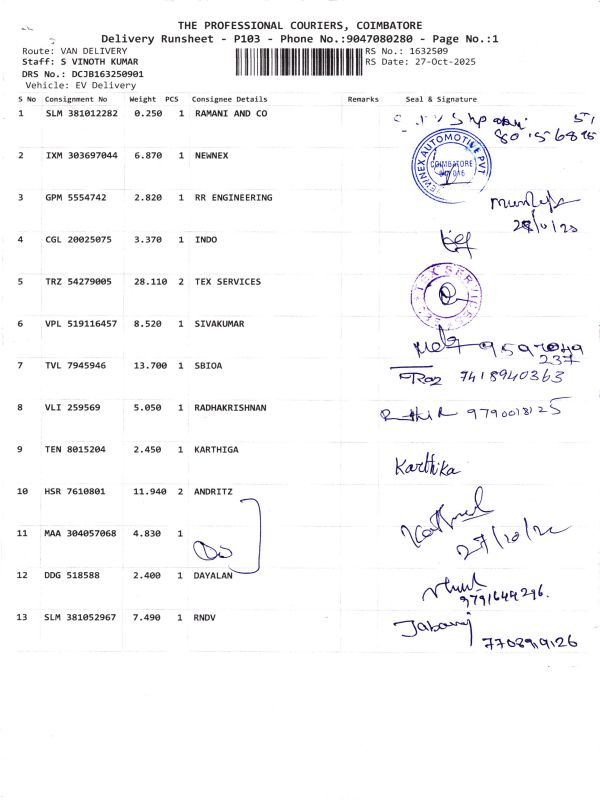 THE PROFESSIONAL COURIERS, COIMBATORE
Delivery Runsheet - P103 - Phone No.:9047080280 - Page No.:1
Route: VAN DELIVERY RS No.: 1632509
Staff: S VINOTH KUMAR RS Date: 27-Oct-2025
DRS No.: DCJB163250901
Vehicle: EV Delivery
S No Consignment No Weight PCS Consignee Details Remarks Seal & Signature
1 SLM 381012282 0.250 1 RAMANI AND CO
2 IXM 303697044 6.870 1 NEWNEX
NEWNEX AUTOMOTIVE PVT
COIMBATORE
3 GPM 5554742 2.820 1 RR ENGINEERING
4 CGL 20025075 3.370 1 INDO
5 TRZ 54279005 28.110 2 TEX SERVICES
TEX SERVICES
6 VPL 519116457 8.520 1 SIVAKUMAR
237
7 TVL 7945946 13.700 1 SBIOA 7418940363
8 VLI 259569 5.050 1 RADHAKRISHNAN 9790018125
9 TEN 8015204 2.450 1 KARTHIGA
Karthika
10 HSR 7610801 11.940 2 ANDRITZ
11 MAA 304057068 4.830 1
12 DDG 518588 2.400 1 DAYALAN
9791644296.
13 SLM 381052967 7.490 1 RNDV
Jabaraj